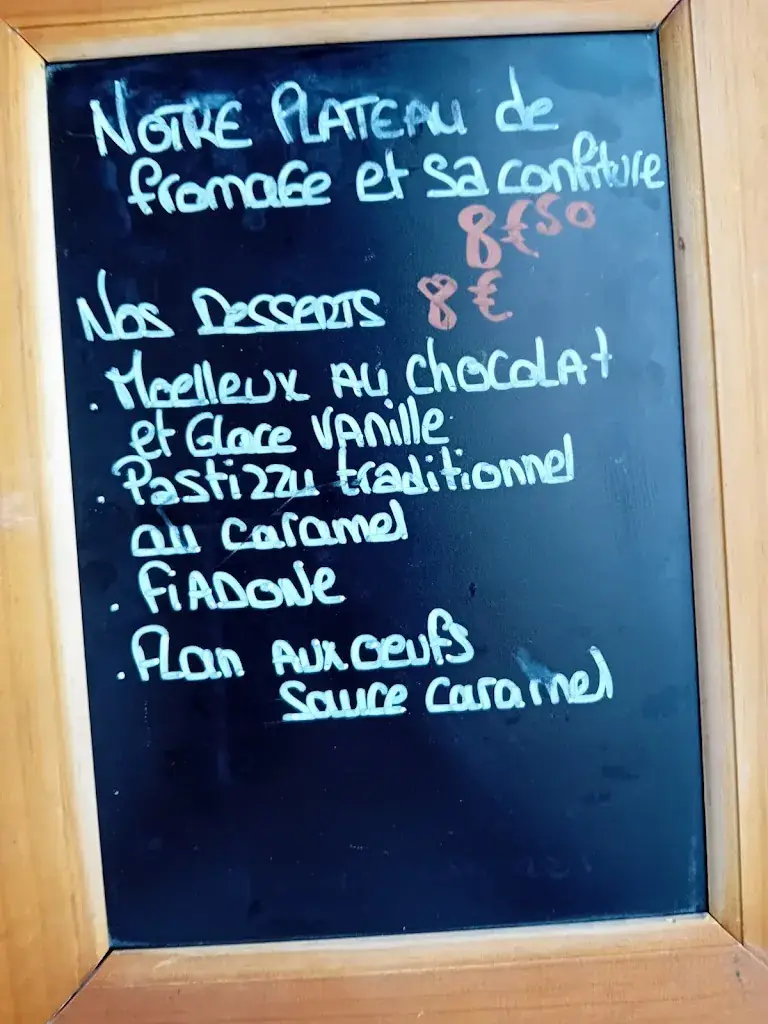 NOTRE PLATEAU de
fromaGe et sa confiture
8€50
Nos DesserTs 8€
. Moelleux AU CHOCOLAt
et Glace VANille
. Pastizzu traditionnel
au caramel
. FiADONe
. Flan AUX OEUFS
Sauce caramel